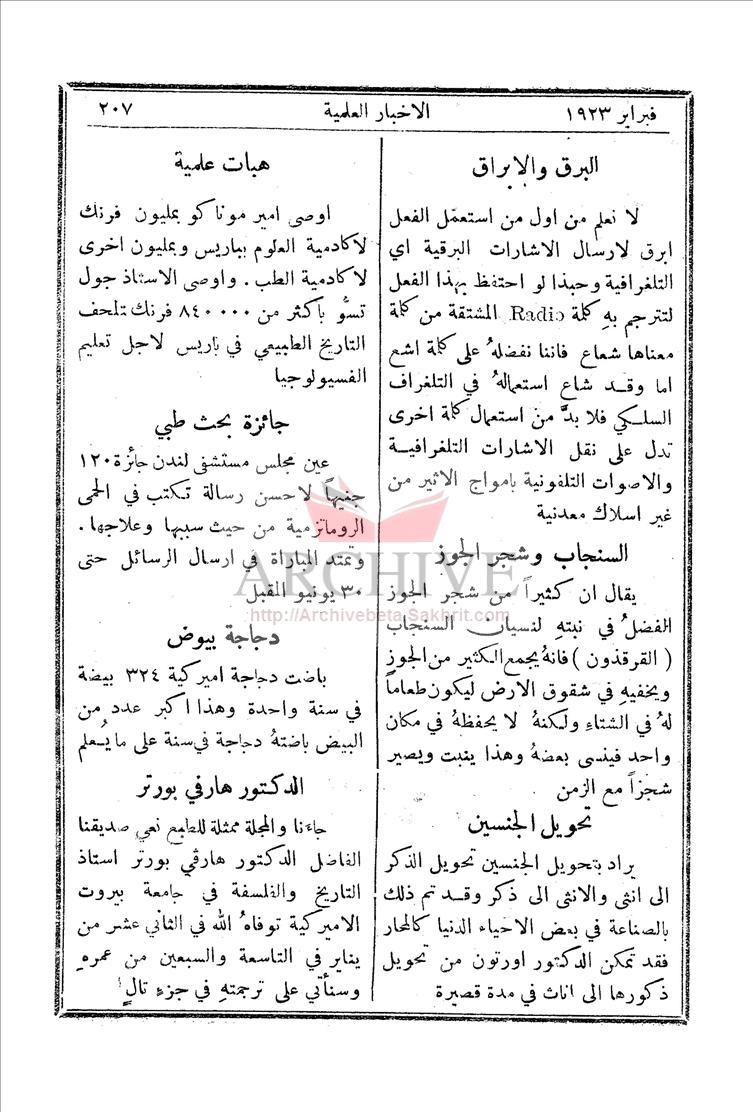 فبراير ١٩٢٣
الاخبار العلمية
٢٠٧
البرق والابراق
لا نعلم من اول من استعمل الفعل
ابرق لارسال الاشارات البرقية اي
التلغرافية وحبذا لو احتفظ بهذا الفعل
لتترجم بهِ كلمة Radio المشتقة من كلمة
معناها شعاع فاننا نفضلهُ على كلمة اشع
اما وقد شاع استعمالهُ في التلغراف
السلكي فلا بدَّ من استعمال كلمة اخرى
تدل على نقل الاشارات التلغرافية
والاصوات التلفونية بامواج الاثير من
غير اسلاك معدنية
السنجاب وشجر الجوز
يقال ان كثيراً من شجر الجوز
الفضلُ في نبتهِ لنسيان السنجاب
( القرقذون ) فانهُ يجمع الكثير من الجوز
ويخفيهِ في شقوق الارض ليكون طعاماً
لهُ في الشتاءِ ولكنهُ لا يحفظهُ في مكان
واحد فينسى بعضهُ وهذا ينبت ويصير
شجراً مع الزمن
تحويل الجنسين
يراد بتحويل الجنسين تحويل الذكر
الى انثى والانثى الى ذكر وقد تم ذلك
بالصناعة في بعض الاحياء الدنيا كالمحار
فقد تمكن الدكتور اورتون من تحويل
ذكورها الى اناث في مدة قصيرة
هبات علمية
اوصى امير موناكو بمليون فرنك
لاكادمية العلوم بباريس وبمليون اخرى
لاكادمية الطب . واوصى الاستاذ جول
تسوُّ باكثر من ٨٤٠٠٠٠ فرنك لمتحف
التاريخ الطبيعي في باريس لاجل تعليم
الفسيولوجيا
جائزة بحث طبي
عين مجلس مستشفى لندن جائزة ١٢٠
جنيهاً لاحسن رسالة تكتب في الحمى
الروماتزمية من حيث سببها وعلاجها .
وتمتد المباراة في ارسال الرسائل حتى
٣٠ يونيو المقبل
دجاجة بيوض
باضت دجاجة اميركية ٣٢٤ بيضة
في سنة واحدة وهذا اكبر عدد من
البيض باضتهُ دجاجة في سنة على ما يُعلم
الدكتور هارفي بورتر
جاءَنا والمجلة ممثلة للطبع نعي صديقنا
الفاضل الدكتور هارفي بورتر استاذ
التاريخ والفلسفة في جامعة بيروت
الاميركية توفاهُ الله في الثاني عشر من
يناير في التاسعة والسبعين من عمرهِ
وسنأتي على ترجمتهِ في جزءٍ تالٍ
ARCHIVE
http://Archivebeta.Sakhrit.com